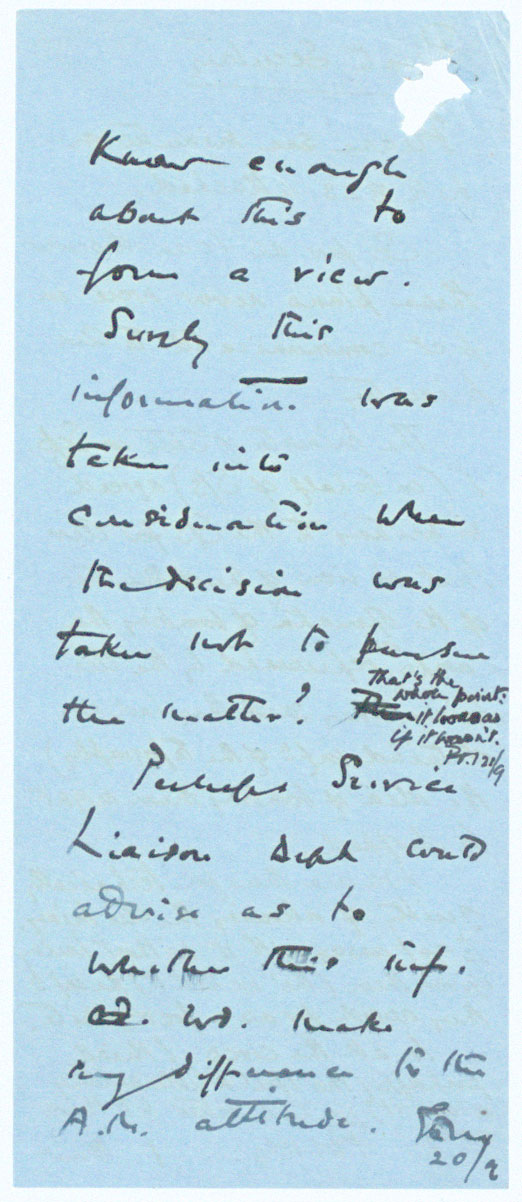 Know enough
about this to
form a view.
Surely this
information was
taken into
consideration when
the decision was
taken not to pursue
the matter?
That's the
whole point:
it looks as
if it wasn't.
21/9
Perhaps Service
Liaison Dept could
advise as to
whether this inf.
wd. make
any difference to the
A.M. attitude.
20/9